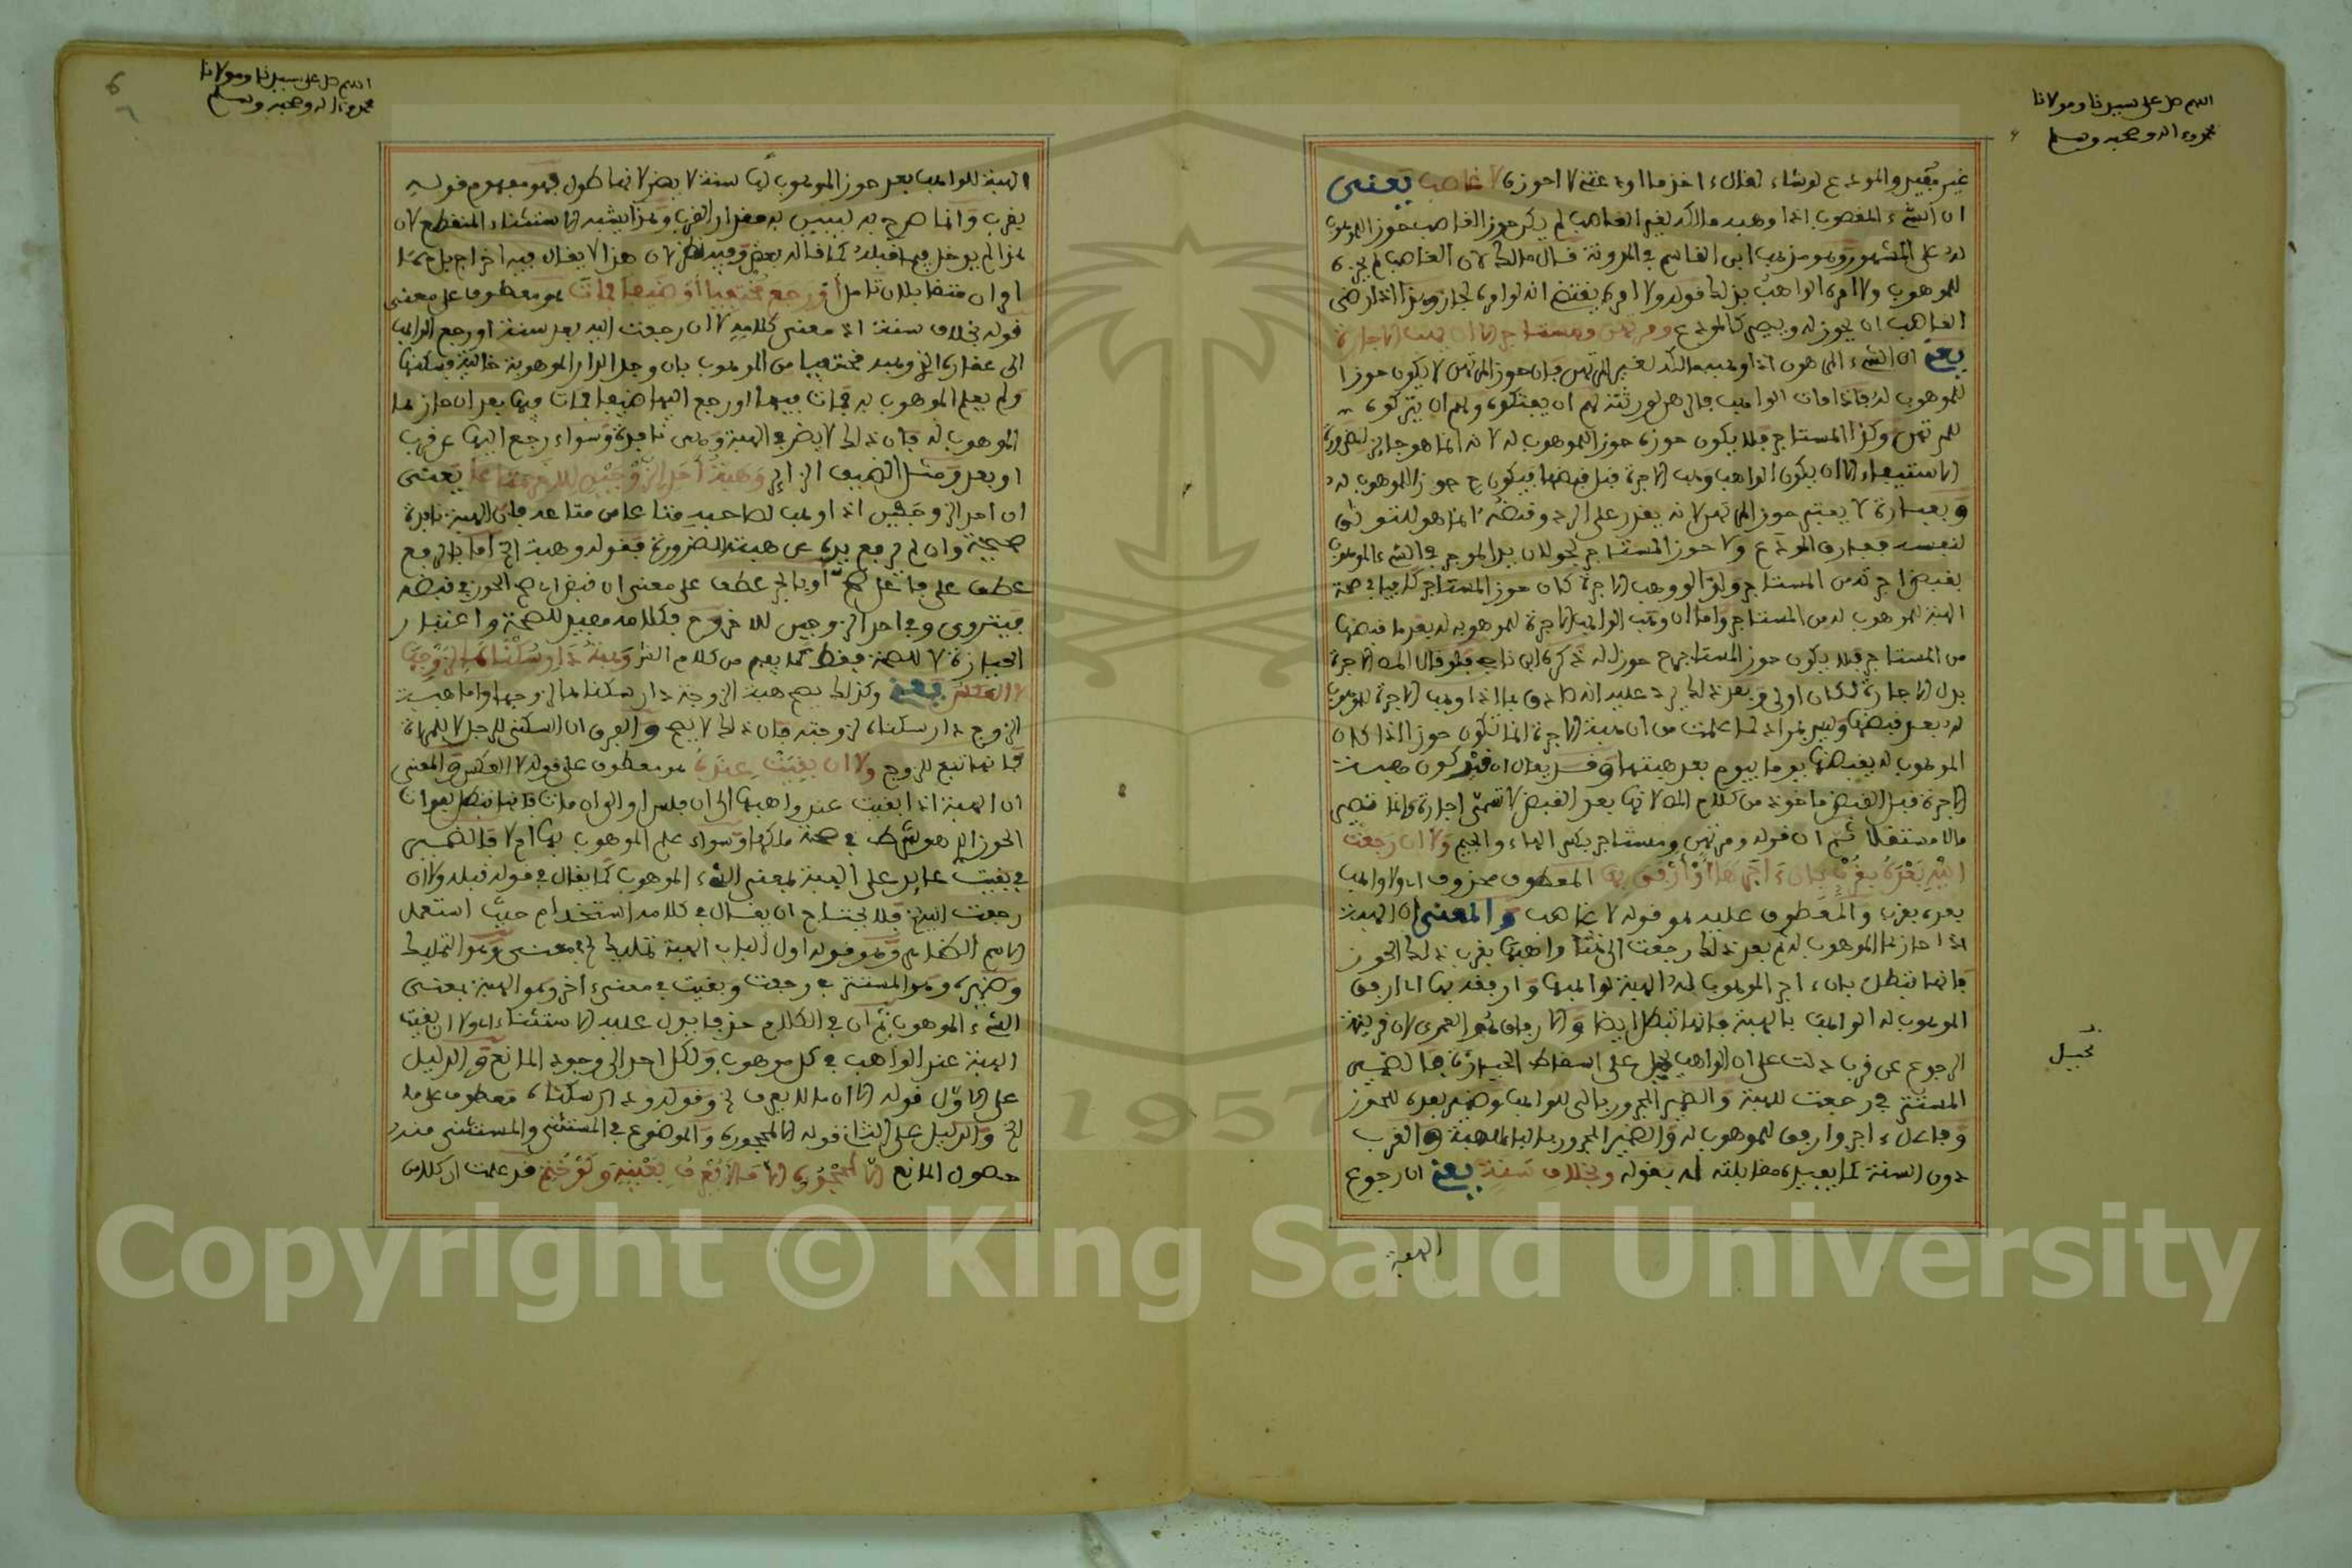 اللهم صل على سيدنا ومولانا
محمد وءاله وصحبه وسلم
غير مقيد والمودع لو شاء لقال خذ ما أودعتني لا حوزه لا غاصب يعني
ان الشيء المغصوب اذا وهبه مالكه لغير الغاصب لم يكن حوز الغاصب حوز الموهوب
له على المشهور وهو مذهب ابن القاسم في المدونة قال مالك لان الغاصب لم يحزه
للموهوب ولا امره الواهب بذلك فقوله ولا امره يقتضي انه لو امره لجاز وهذا اذا رضي
الغاصب ان يحوز له ويصير كالمودع ومرتهن ومستاجر الا ان يهب الاجارة
يعني ان الشيء المرهون اذا وهبه مالكه لغير المرتهن فان حوز المرتهن لا يكون حوزا
للموهوب له فاذا مات الواهب فالرهن لورثته لهم ان يفتكوه ولهم ان يتركوه
للمرتهن وكذا المستاجر فلا يكون حوزه حوز للموهوب له لانه انما هو جايز لضرورة
الاستيفاء الا ان يكون الواهب وهب الاجرة قبل قبضها فيكون ح حوز للموهوب له
وبعبارة لا يعتبر حوز المرتهن لانه يقدر على الرد وقبضه انما هو للتوثق
لنفسه بخلاف المودع ولا حوز المستاجر لجولان يد الموجر في الشيء الموهوب
بقبض اجرته من المستاجر ولذا لو وهب الاجرة كان حوز المستاجر كافيا في صحة
الهبة للموهوب له من المستاجر واما ان وهب الواهب الاجرة للموهوب له بعد ما قبضها
من المستاجر فلا يكون حوز المستاجر ح حوز له ذكره ابن ناجي فلو قال المص الاجرة
بدل الاجارة لكان اولى وبعد ذلك يرد عليه انه صادق بما اذا وهب الاجرة للموهوب
له بعد قبضها وليس بمراد لما علمت من ان هبة الاجرة انما تكون حوزا اذا كان
الموهوب له يقبضها يوما بيوم بعد هبتها وقد يقال ان قيد كون هبة
الاجرة قبل القبض ماخوذ من كلام المص لانها بعد القبض لا تسمى اجارة وانما تصير
مالا مستقلا ثم ان قوله ومرتهن ومستاجر بكسر الهاء والجيم ولا ان رجعت
اليه بعده بقرب بان ءاجرها او ارفق بها المعطوف محذوف اي ولا واهب
بعده بقرب والمعطوف عليه هو قوله لا غاصب والمعنى ان الهبة
اذا حازها الموهوب له ثم بعد ذلك رجعت الى واهبها بقرب ذلك الحوز
فانها تبطل بان ءاجر الموهوب له الهبة لواهبها وارفقه بها اي ارفق
الموهوب له الواهب بالهبة فانها تبطل ايضا والارفاق هو العمرى لان قرينة
الرجوع عن قرب دلت على ان الواهب تحيل على اسقاط الحيازة فالضمير
المستتر في رجعت للهبة والضمير المجرور بالى للواهب وضمير بعده للحوز
وفاعل ءاجر وارفق للموهوب له والضمير المجرور بالباء للهبة والقرب
دون السنة كما يفيده مقابلته له بقوله وبخلاف سنة يعني ان رجوع
تحيل
الهبة
اللهم صل على سيدنا ومولانا
محمد وءاله وصحبه وسلم
6
٦
الهبة للواهب بعد حوز الموهوب لها سنة لا يضر لانها طول فهو مفهوم قوله
بقرب وانما صرح به ليبين به مقدار القرب وهذا يشبه الاستثناء المنقطع لان
هذا لم يدخل فيما قبله كما قاله بعض وفيه نظر لان هذا لا يقال فيه اخراج بل هما
امران متقابلان تامل أو رجع مختفيا أو ضيفا فمات هو معطوف على معنى
قوله بخلاف سنة اذ معنى كلامه لا ان رجعت اليه بعد سنة او رجع الواهب
الى عقاره الذي وهبه مختفيا من الموهوب بان وجد الدار الموهوبة خالية فسكنها
ولم يعلم الموهوب به فمات فيها او رجع اليها ضيفا فمات فيها بعد ان حازها
الموهوب له فان ذلك لا يضر في الهبة وهي نافذة وسواء رجع اليها عن قرب
او بعد ومثل الضيف الزاير وهبة أحد الزوجين للاخر متاعا يعني
ان احد الزوجين اذا وهب لصاحبه متاعا من متاعه فان الهبة نافذة
صحيحة وان لم ترفع يده عن هبته للضرورة فقوله وهبة الخ اما بالرفع
عطف على فاعل صح او بالجر عطف على معنى ان قبض اي صح الحوز في قبضه
ليتروى وفي احد الزوجين للاخر وح فكلامه مفيد للصحة واغتفار
الحيازة لا للصحة فقط كما يفهم من كلام الش وهبة دار سكناها لزوجها
لا العكس يعني وكذلك يصح هبة الزوجة دار سكناها لزوجها واما هبة
الزوج دار سكناه لزوجته فان ذلك لا يصح والفرق ان السكنى للرجل لا للمراة
فانها تبع للزوج ولا ان بقيت عنده هو معطوف على قوله لا العكس والمعنى
ان الهبة اذا بقيت عند واهبها الى ان فلس او الى ان مات فانها تبطل لفوات
الحوز الذي هو شرط في صحة ملكها وسواء علم الموهوب بها ام لا فالضمير
في بقيت عايد على الهبة بمعنى الشيء الموهوب كما يقال في قوله قبله ولا ان
رجعت اليه فلا يحتاج ان يقال في كلامه استخدام حيث استعمل
الاسم الظاهر وهو قوله اول الباب الهبة تمليك في معنى وهو التمليك
وضميره وهو المستتر في رجعت وبقيت في معنى ءاخر وهو الهبة بمعنى
الشيء الموهوب ثم ان في الكلام حذفا يدل عليه الاستثناء اي ولا ان بقيت
الهبة عند الواهب في كل موهوب ولكل احد الى وجود المانع والدليل
على الاول قوله الا ان ما لا يعرف الخ وقوله ودار سكناه معطوف على ما
الخ والدليل على الثاني قوله الا لمحجوره والموضوع في المستثنى والمستثنى منه
حصول المانع الا لمحجوره الا ما لا يعرف بعينه ولو ختم قد علمت ان كلامه
Copyright © King Saud University
1957